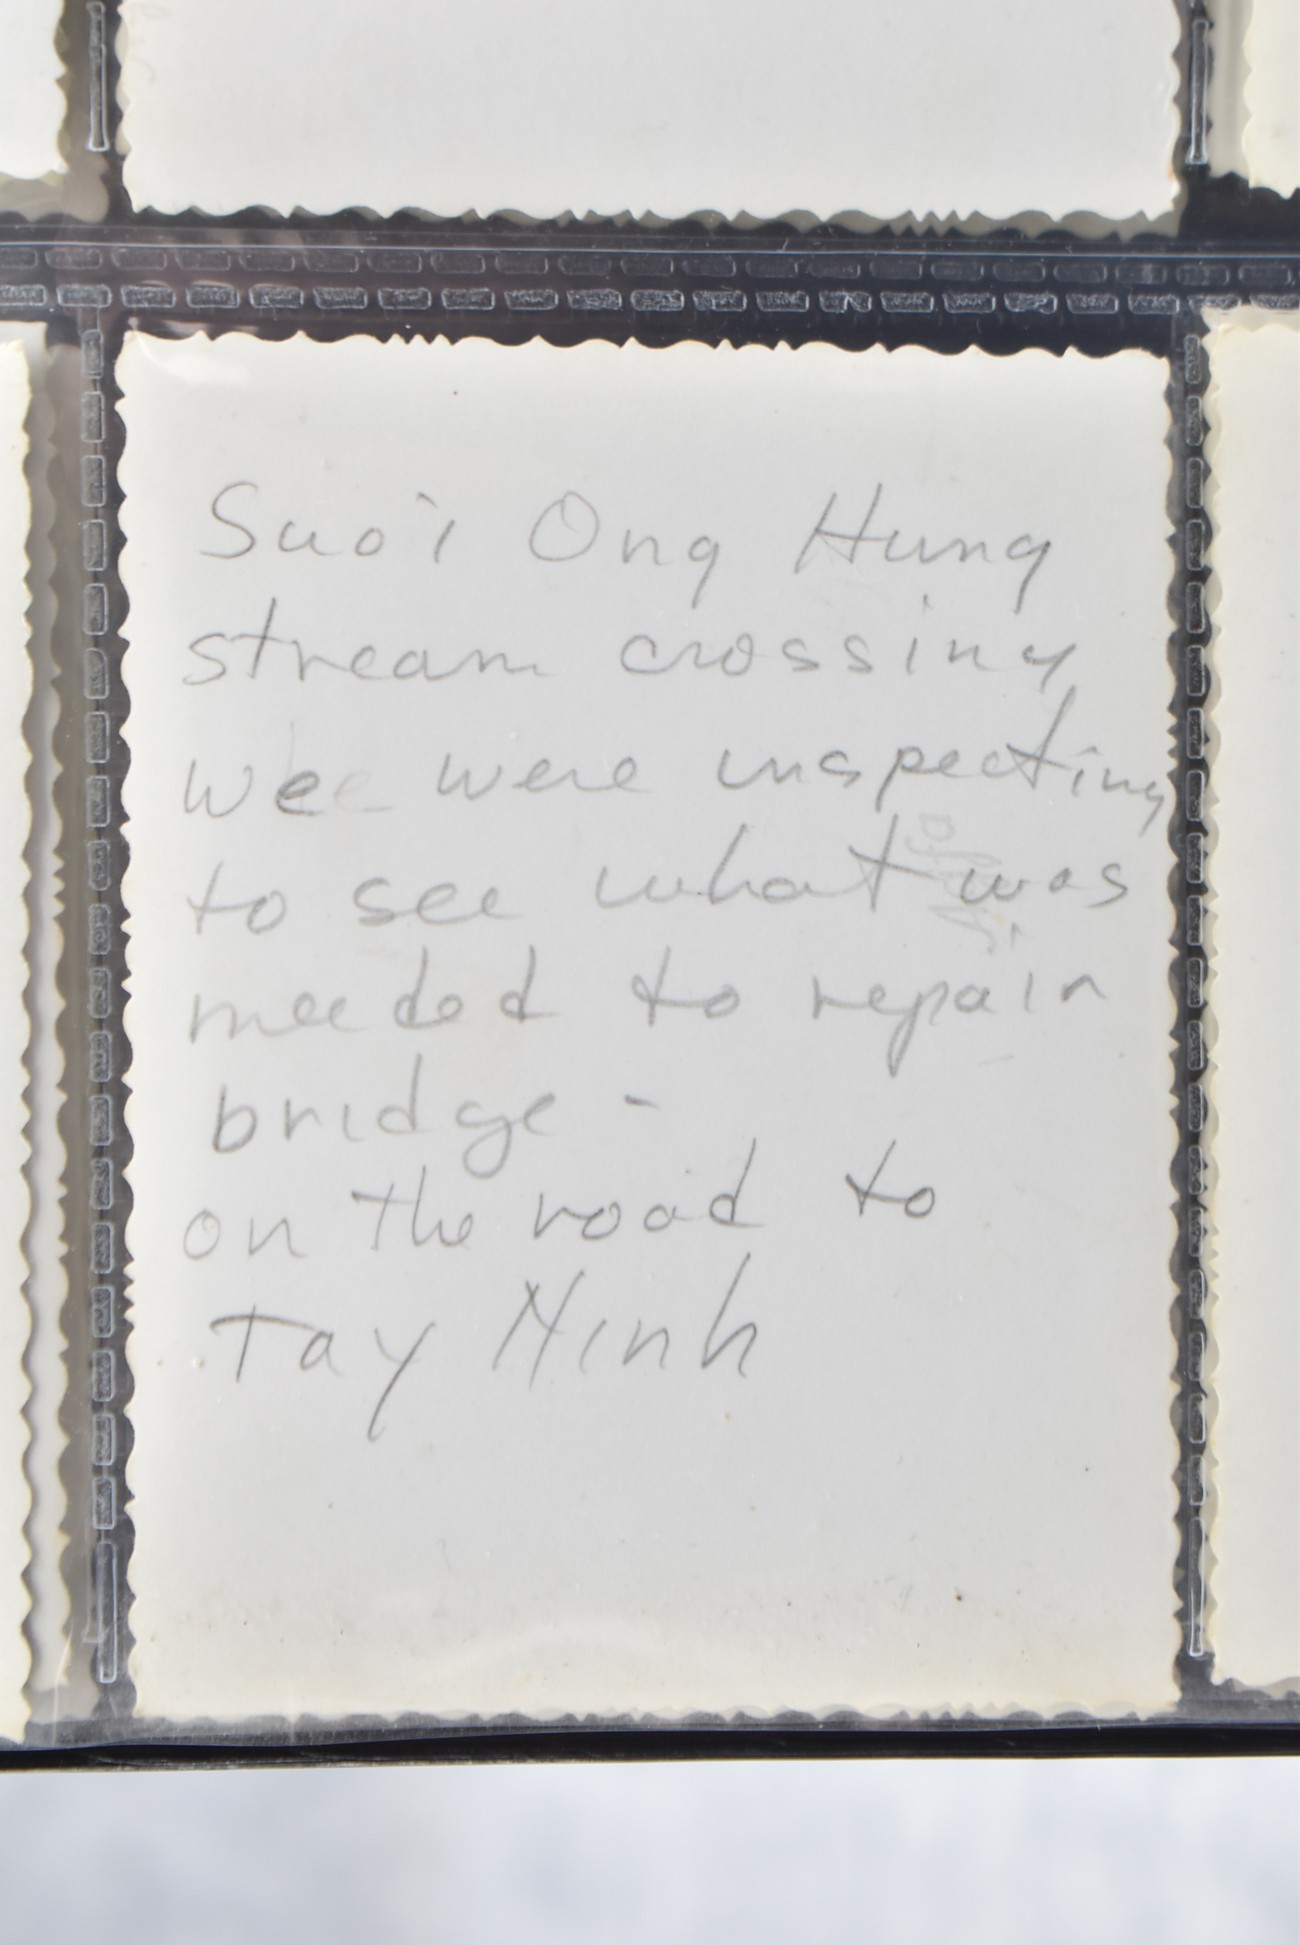 Suo'i Ong Hung
stream crossing
wee were inspecting
to see what was
needed to repair
bridge -
on the road to
Tay Ninh